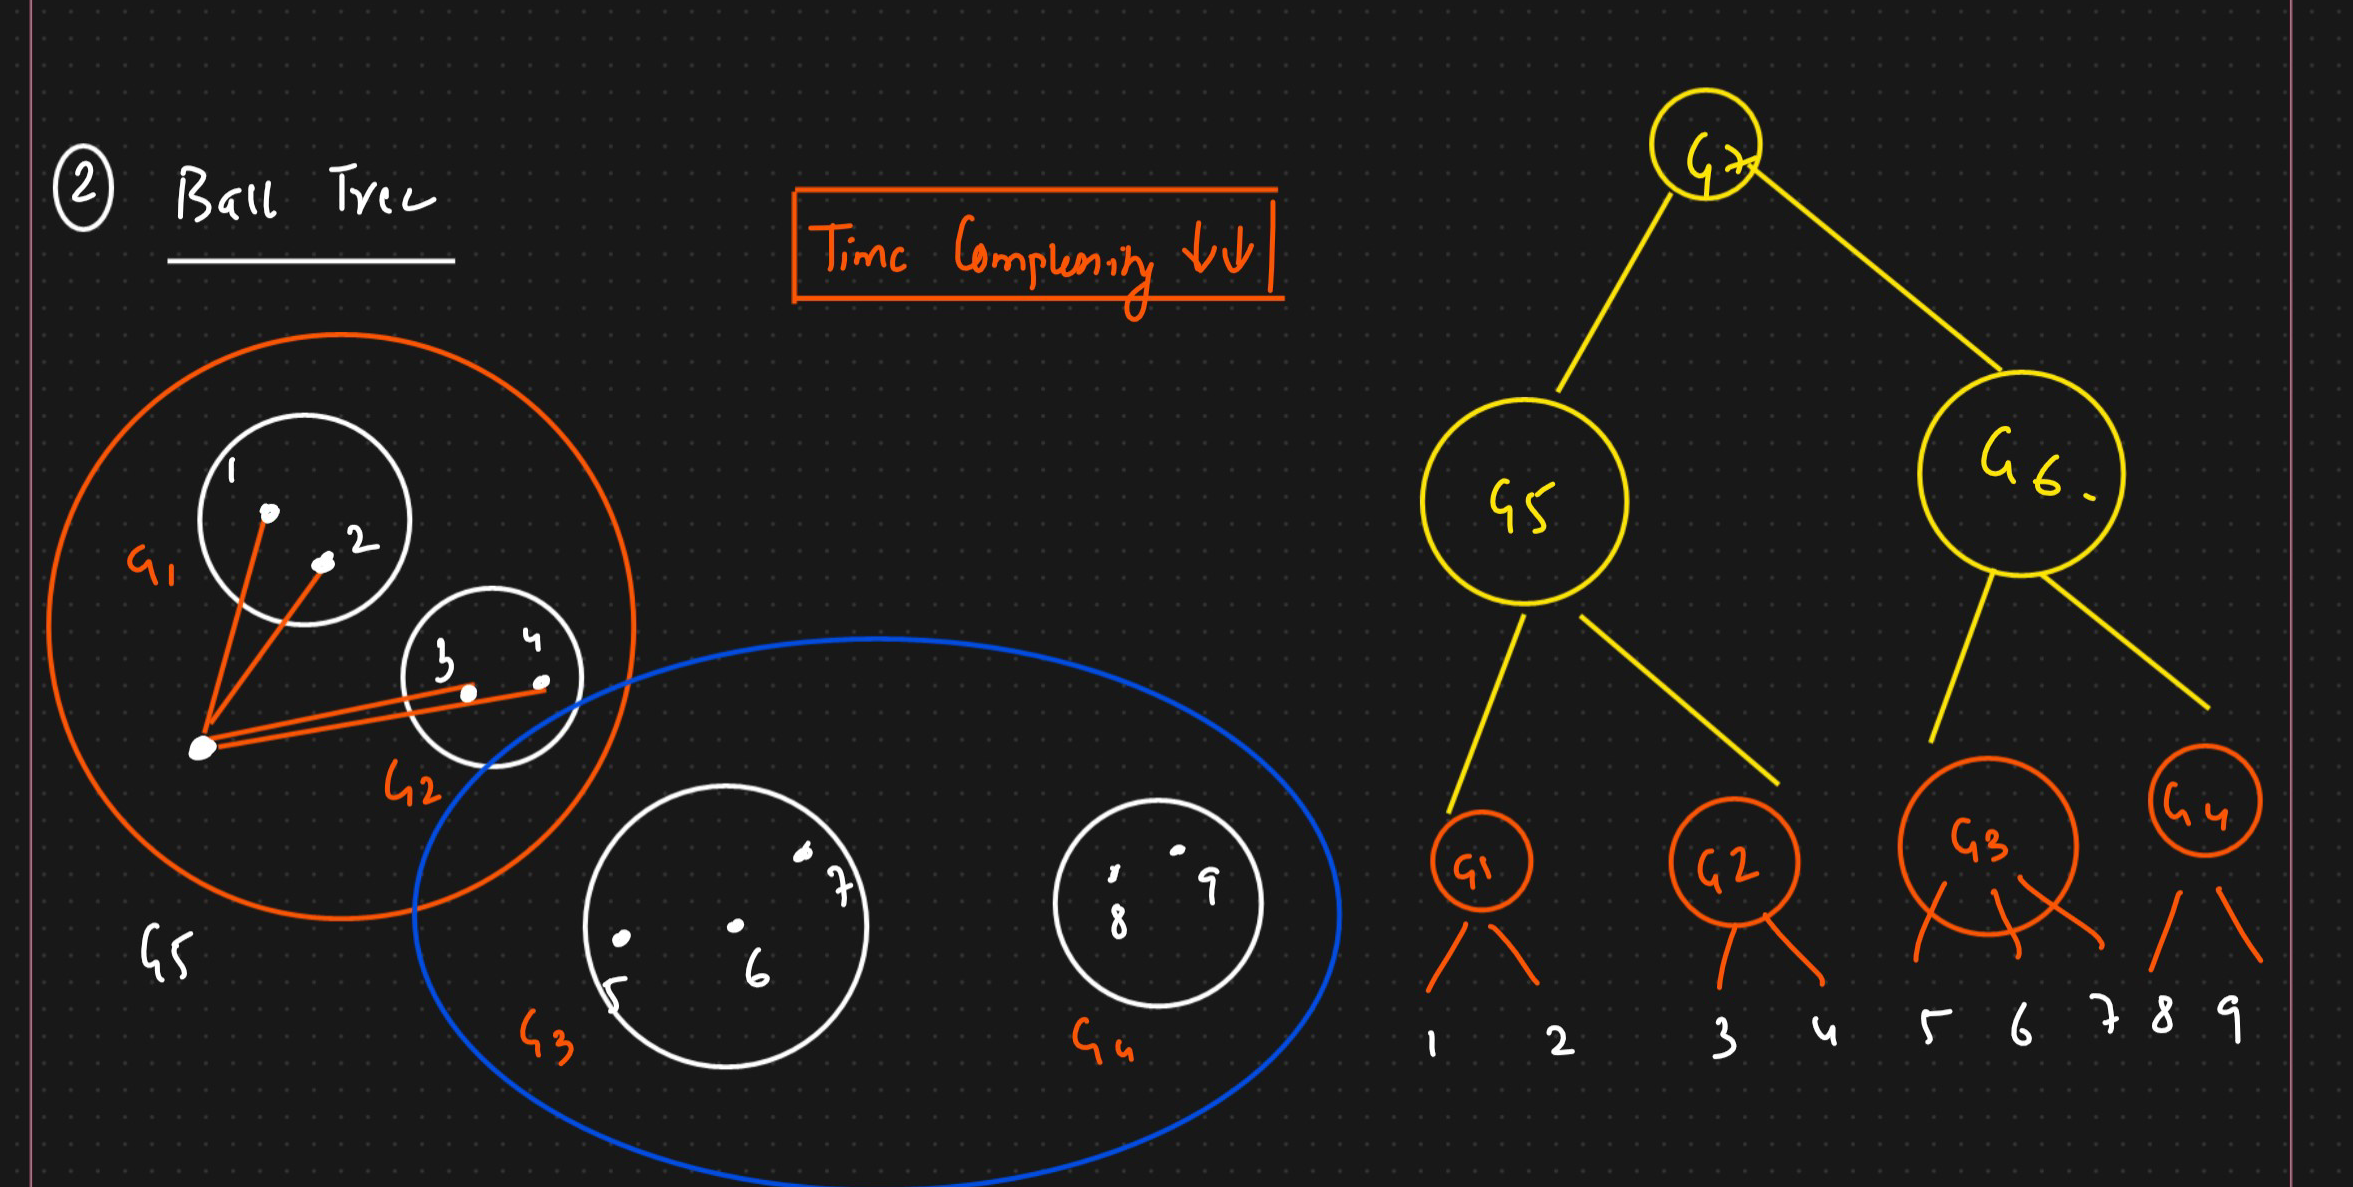 2 Ball Tree
Time Complexity ↓↓
1
2
G1
3 4
G2
G5
7
5 6
G3
8 9
G4
G7
G5 G6
G1 G2 G3 G4
1 2 3 4 5 6 7 8 9